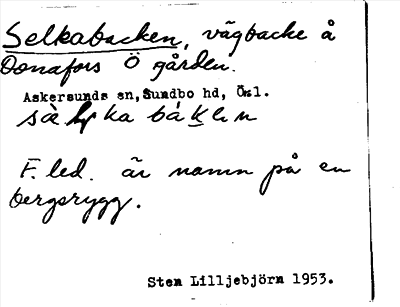 Selkabacken, vägbacke å
Donafors Ö gården.
Askersunds sn, Sundbo hd, Ö~l.
ka
F. led. är namn på en
bergsrygg.
Sten Lilljebjörn 1953.